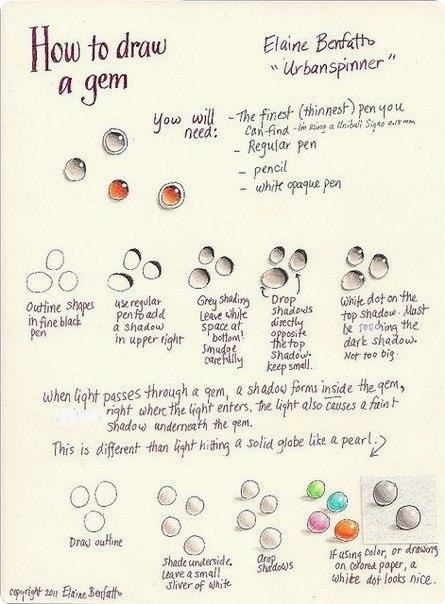 How to draw
a gem
Elaine Benfatto
"Urbanspinner"
You will
need:
- The finest (thinnest) pen you
can find - I'm using a Uniball Signo 0.18 mm
- Regular pen
- pencil
- white opaque pen
Outline shapes
in fine black
pen
use regular
pen to add
a shadow
in upper right
Grey shading
Leave white
space at
bottom!
Smudge
carefully
Drop
shadows
directly
opposite
the top
shadow.
keep small.
White dot on the
top shadow. Must
be touching the
dark shadow.
Not too big.
When light passes through a gem, a shadow forms inside the gem,
right where the light enters, the light also causes a faint
shadow underneath the gem.
This is different than light hitting a solid globe like a pearl.
Draw outline
Shade underside.
Leave a small
sliver of white
drop
shadows
If using color, or drawing
on colored paper, a
white dot looks nice.
copyright 2011 Elaine Benfatto